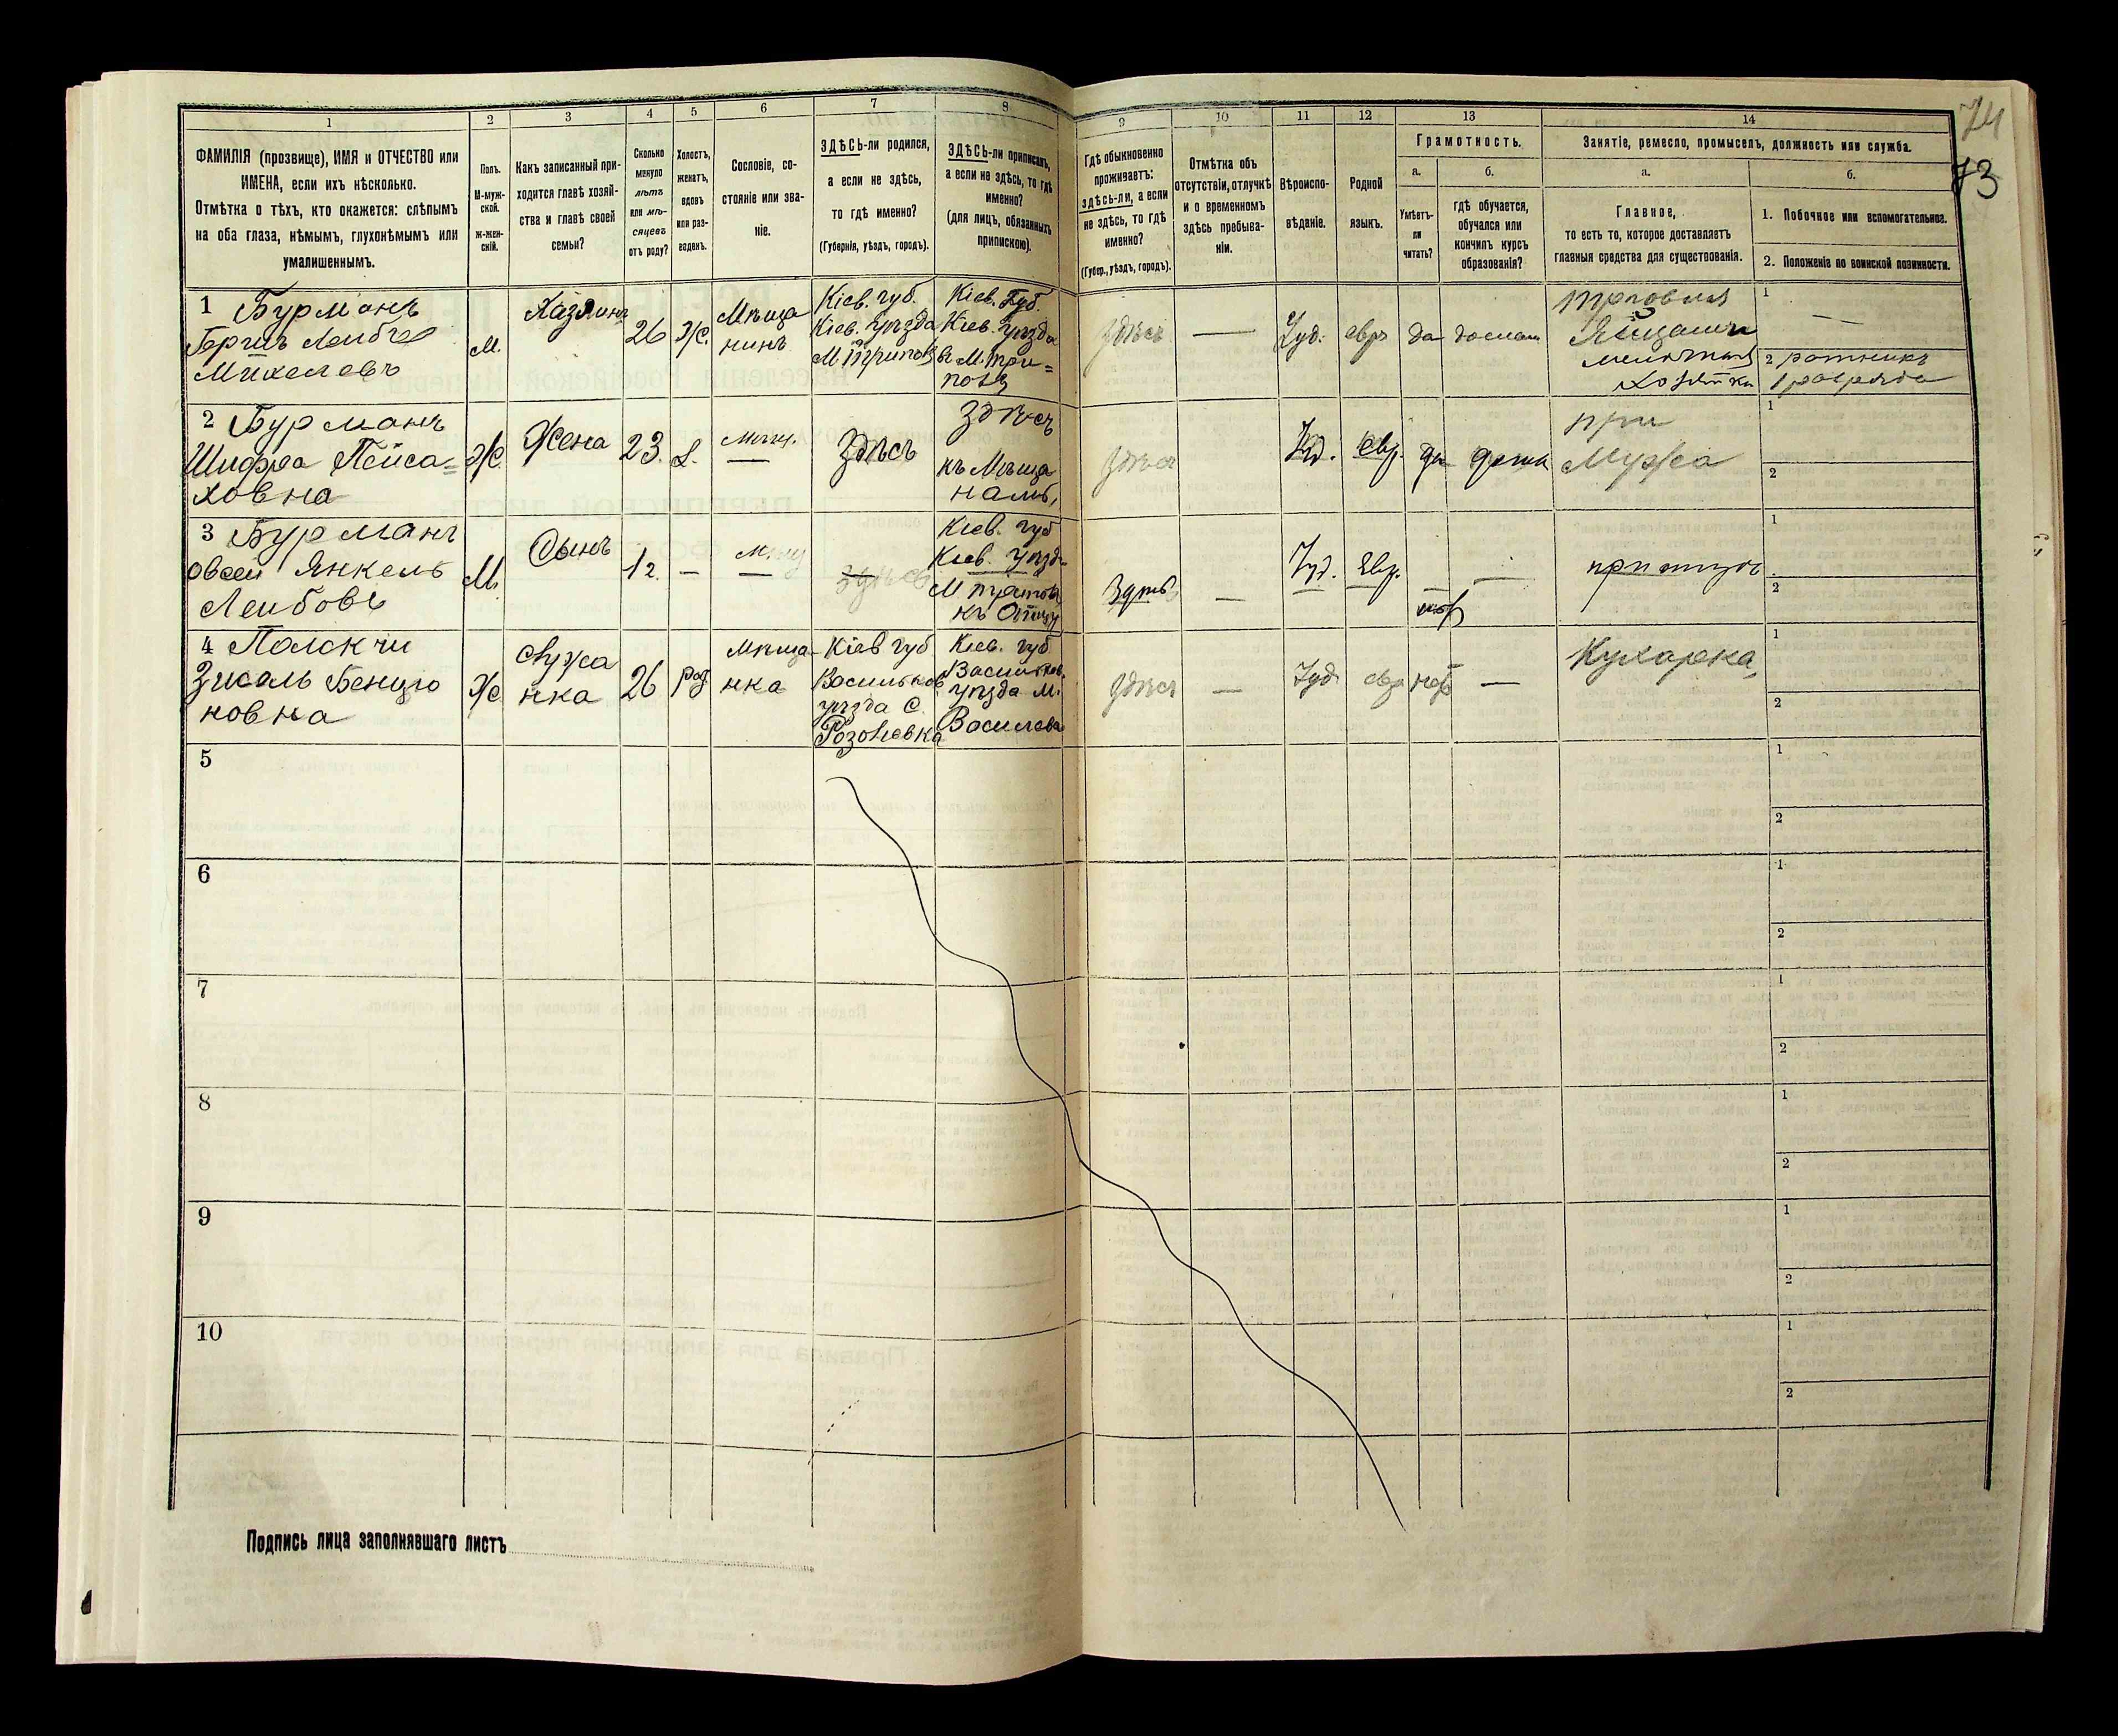 74
73
1
2
3
4
5
6
7
8
9
10
11
12
13
14
ФАМИЛІЯ (прозвище), ИМЯ и ОТЧЕСТВО или
ИМЕНА, если ихъ нѣсколько.
Отмѣтка о тѣхъ, кто окажется: слѣпымъ
на оба глаза, нѣмымъ, глухонѣмымъ или
умалишеннымъ.
Полъ.
М-муж-
ской.
Ж-жен-
скій.
Какъ записанный при-
ходится главѣ хозяй-
ства и главѣ своей
семьи?
Сколько
минуло
лѣтъ
или мѣ-
сяцевъ
отъ роду?
Холостъ,
женатъ,
вдовъ
или раз-
веденъ.
Сословіе, со-
стояніе или зва-
ніе.
ЗДѢСЬ-ли родился,
а если не здѣсь,
то гдѣ именно?
(Губернія, уѣздъ, городъ).
ЗДѢСЬ-ли приписанъ,
а если не здѣсь, то гдѣ
именно?
(для лицъ, обязанныхъ
припискою).
Гдѣ обыкновенно
проживаетъ:
здѣсь-ли, а если
не здѣсь, то гдѣ
именно?
(Губер., уѣздъ, городъ).
Отмѣтка объ
отсутствіи, отлучкѣ
и о временномъ
здѣсь пребыва-
ніи.
Вѣроиспо-
вѣданіе.
Родной
языкъ.
Грамотность.
а.
Умѣетъ-
ли
читать?
б.
гдѣ обучается,
обучался или
кончилъ курсъ
образованія?
Занятіе, ремесло, промыселъ, должность или служба.
а.
Главное,
то есть то, которое доставляетъ
главныя средства для существованія.
б.
1. Побочное или вспомогательное.
2. Положеніе по воинской повинности.
1 Бурманъ
Берко Лейбъ
Михелевъ
М.
Хазяинъ
26
Ж.
Мѣща
нинъ
Кіев. губ.
Кіев. уѣзда
М Триполь
Кіев. Губ.
Кіев. уѣзда
М. Три=
поль
здѣсь
—
Іуд.
евр
да
дома
торговля
Яйцами
хозяинъ
1 —
2 ратникъ
1 разряда
2 Бурманъ
Шифра Пейса=
ховна
Ж.
Жена
23.
Мѣщ.
Здѣсь
здѣсь
къ Мѣща
намъ,
здѣсь
Іуд.
Евр.
да
дома
при
Мужа
1
2
3 Бурманъ
Овсей Янкель
Лейбовъ
М.
Сынъ
1/2.
—
Мѣщ
здѣсь
Кіев. губ
Кіев. уѣзд
М Триполь
къ Отцу
Здѣсь
—
Іуд.
Евр.
нѣтъ
—
при отцѣ
1
2
4 Полскчи
Зисель Бенціо
новна
Ж
служа
нка
26
раз
Мѣща
нка
Кіев губ
Васильков
уѣзда С.
Розолевка
Кіев. губ
Васильков.
уѣзда М.
Василева
здѣсь
—
Іуд
евр
нѣтъ
—
Кухарка,
1
2
5
1
2
6
1
2
7
1
2
8
1
2
9
1
2
10
1
2
Подпись лица заполнявшаго листъ